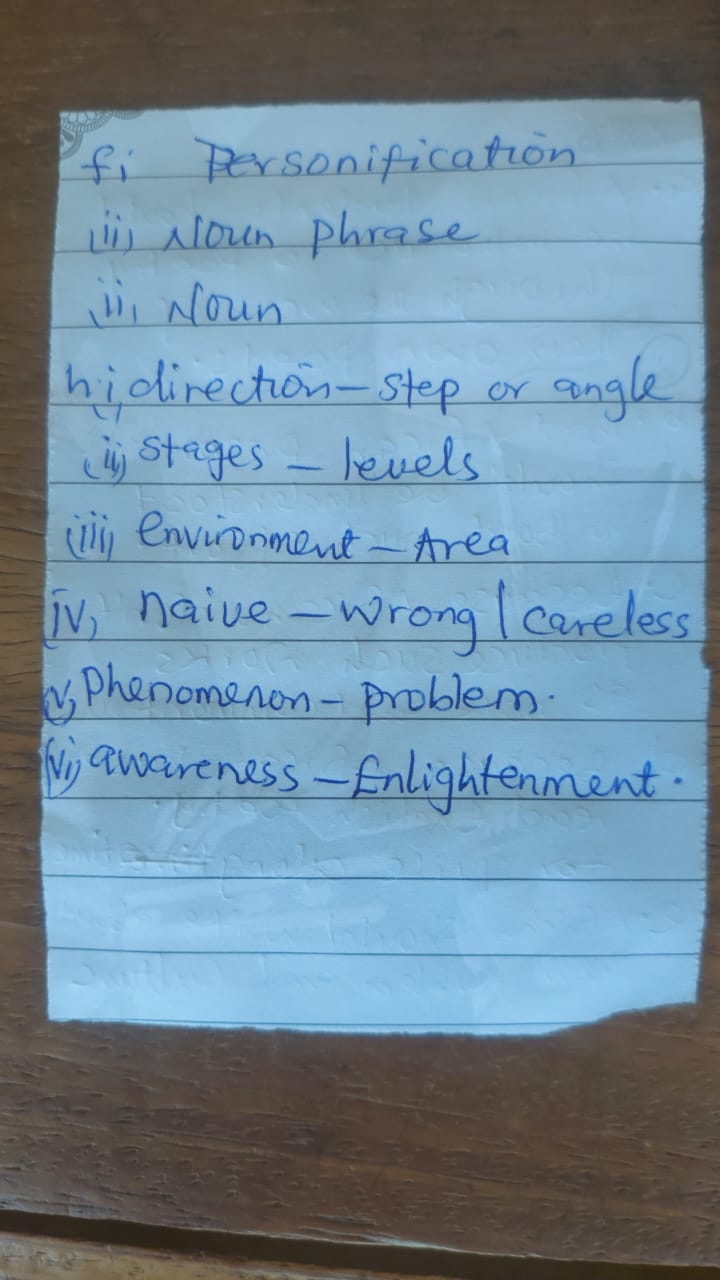 fi Personification
(ii) Noun phrase
(ii, Noun
h.i, direction - step or angle
(ii) stages - levels
(iii) environment - Area
iv, naive - wrong / careless
(v) Phenomenon - problem.
(vi) awareness - Enlightenment.